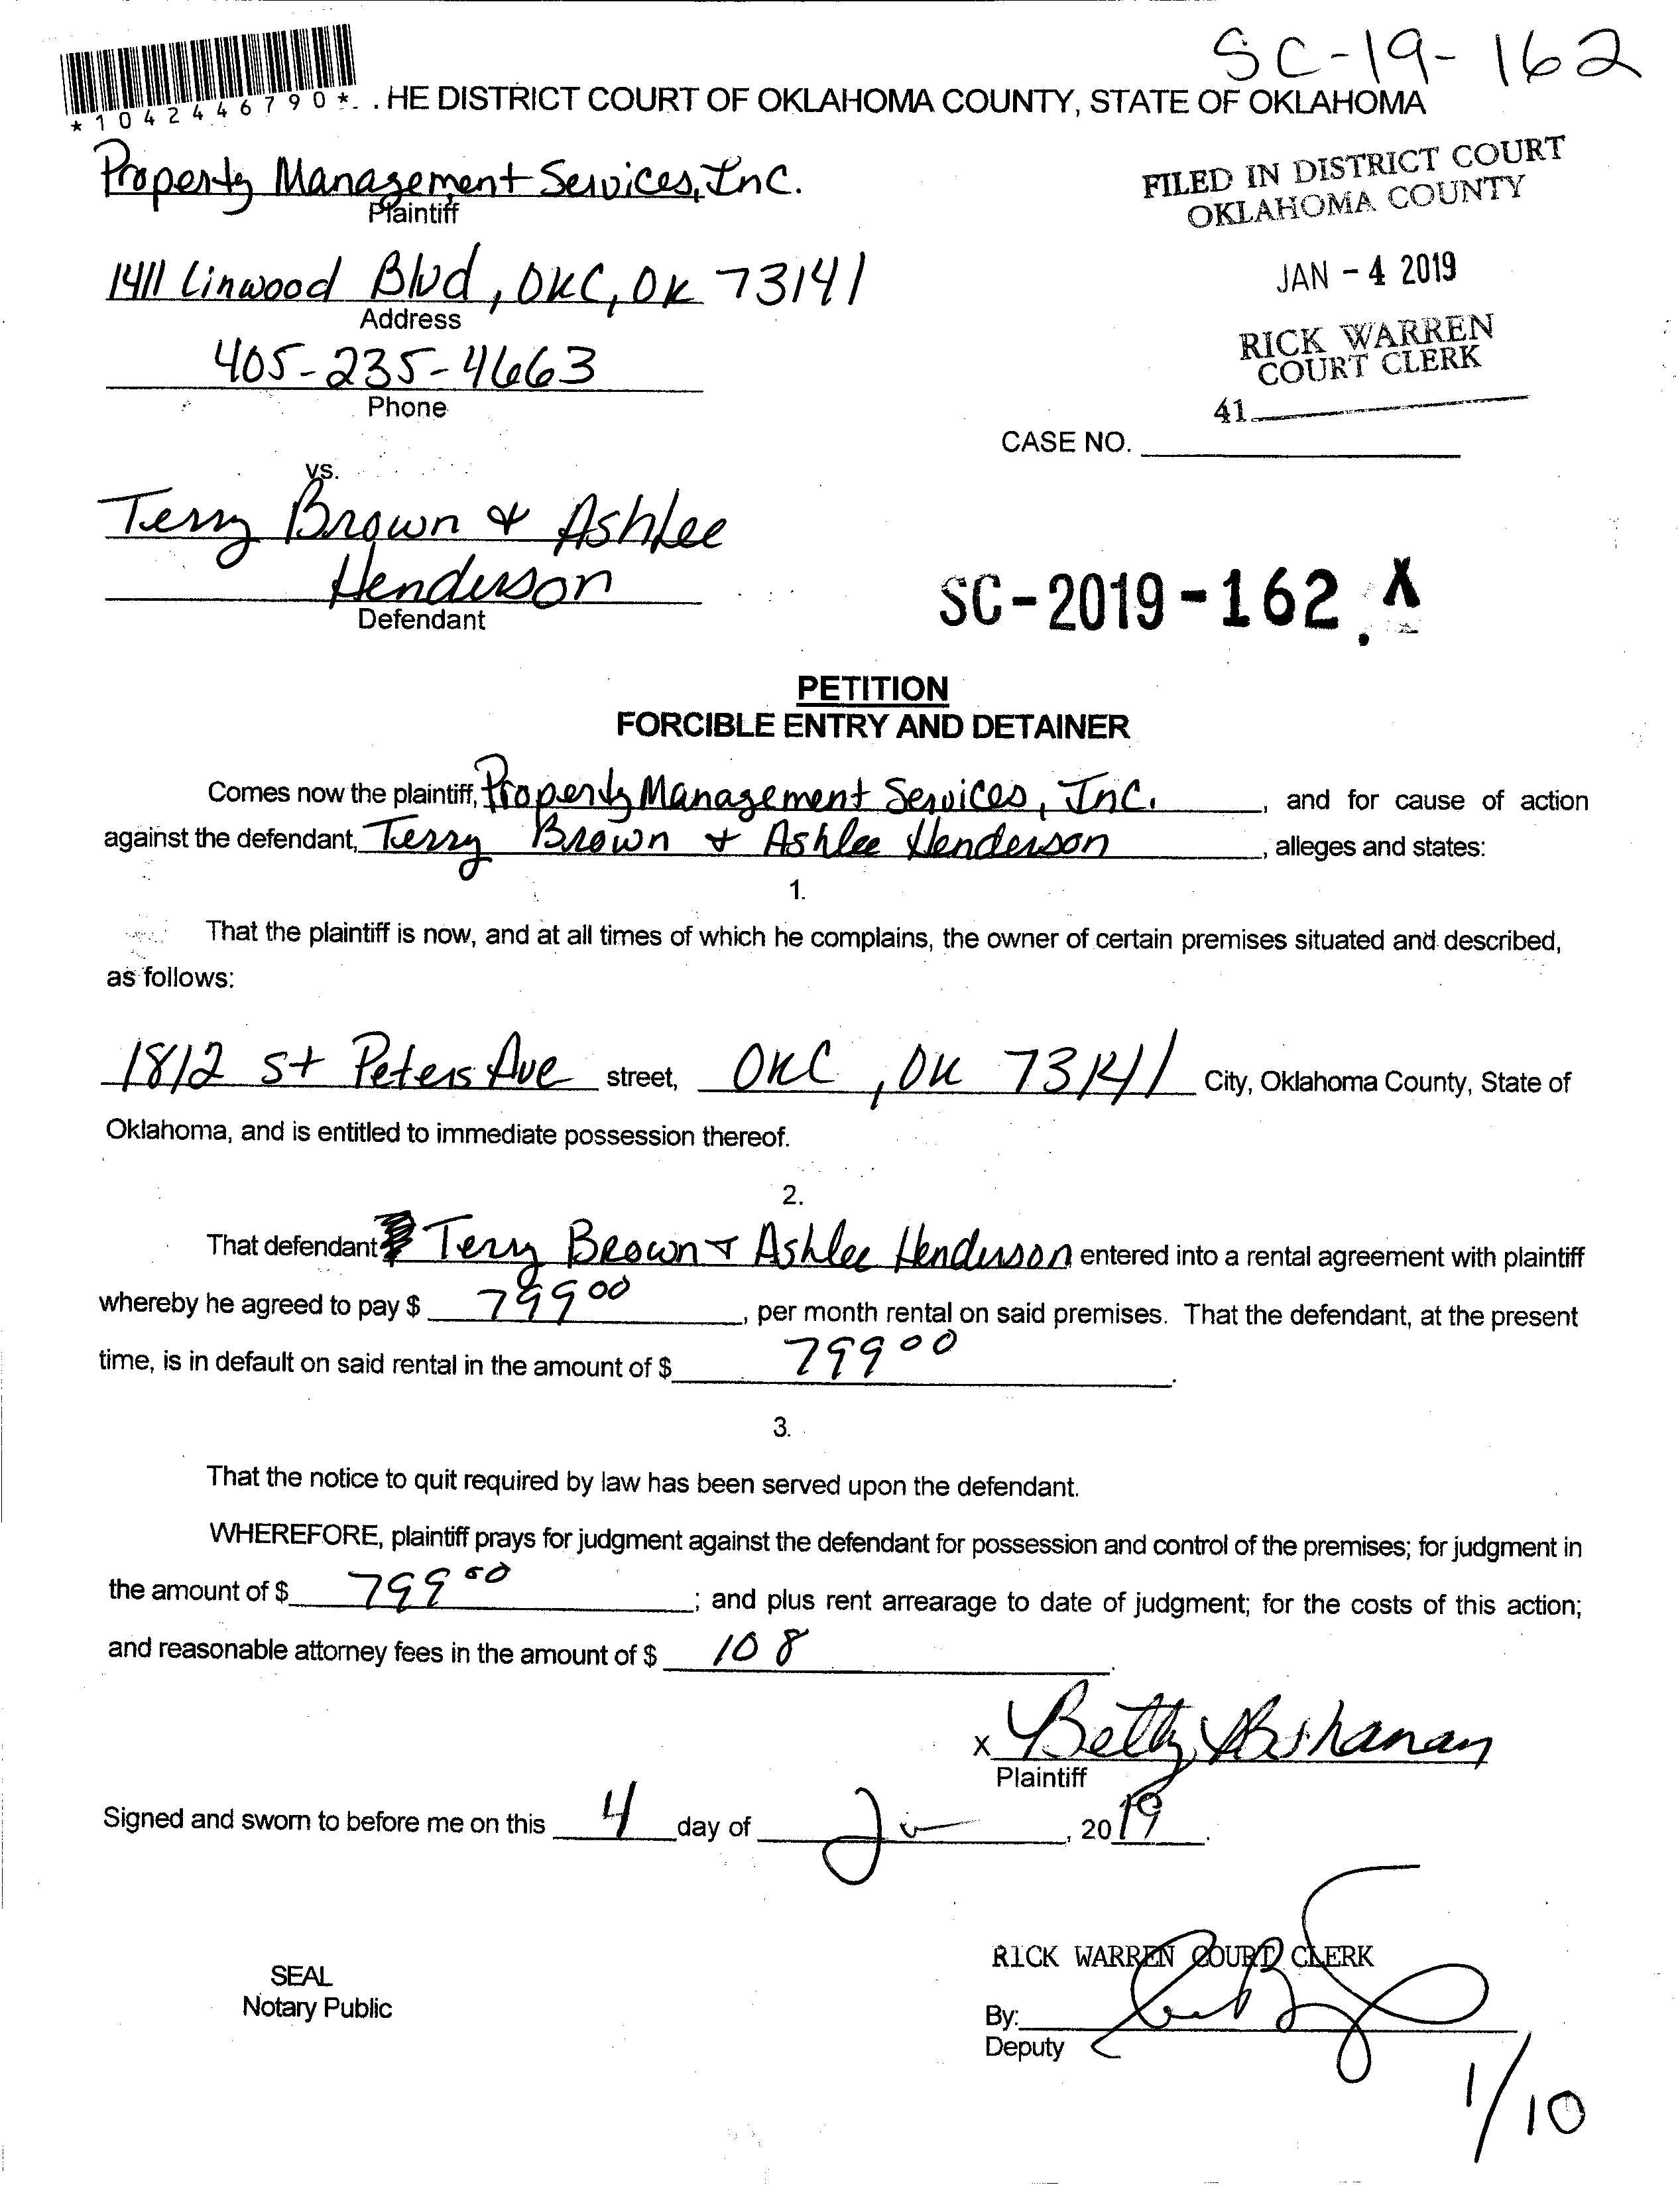 SC-19-162
*1042446790*. . HE DISTRICT COURT OF OKLAHOMA COUNTY, STATE OF OKLAHOMA
Property Management Services, Inc.
Plaintiff
FILED IN DISTRICT COURT
OKLAHOMA COUNTY
1411 Linwood Blvd, OKC, OK 73141
Address
JAN - 4 2019
405-235-4663
Phone
RICK WARREN
COURT CLERK
41
CASE NO.
vs.
Terry Brown & Ashlee
Henderson
Defendant
SC-2019-162 X
PETITION
FORCIBLE ENTRY AND DETAINER
Comes now the plaintiff, Property Management Services, Inc., and for cause of action
against the defendant, Terry Brown + Ashlee Henderson, alleges and states:
1.
That the plaintiff is now, and at all times of which he complains, the owner of certain premises situated and described,
as follows:
1812 St Peters Ave street, OKC, OK 73141 City, Oklahoma County, State of
Oklahoma, and is entitled to immediate possession thereof.
2.
That defendant Terry Brown + Ashlee Henderson entered into a rental agreement with plaintiff
whereby he agreed to pay $ 799 00, per month rental on said premises. That the defendant, at the present
time, is in default on said rental in the amount of $ 799 00.
3.
That the notice to quit required by law has been served upon the defendant.
WHEREFORE, plaintiff prays for judgment against the defendant for possession and control of the premises; for judgment in
the amount of $ 799 00; and plus rent arrearage to date of judgment; for the costs of this action;
and reasonable attorney fees in the amount of $ 108.
x Betty
Plaintiff
Signed and sworn to before me on this 4 day of , 2019.
RICK WARREN COURT CLERK
SEAL
Notary Public
By:
Deputy
1/10